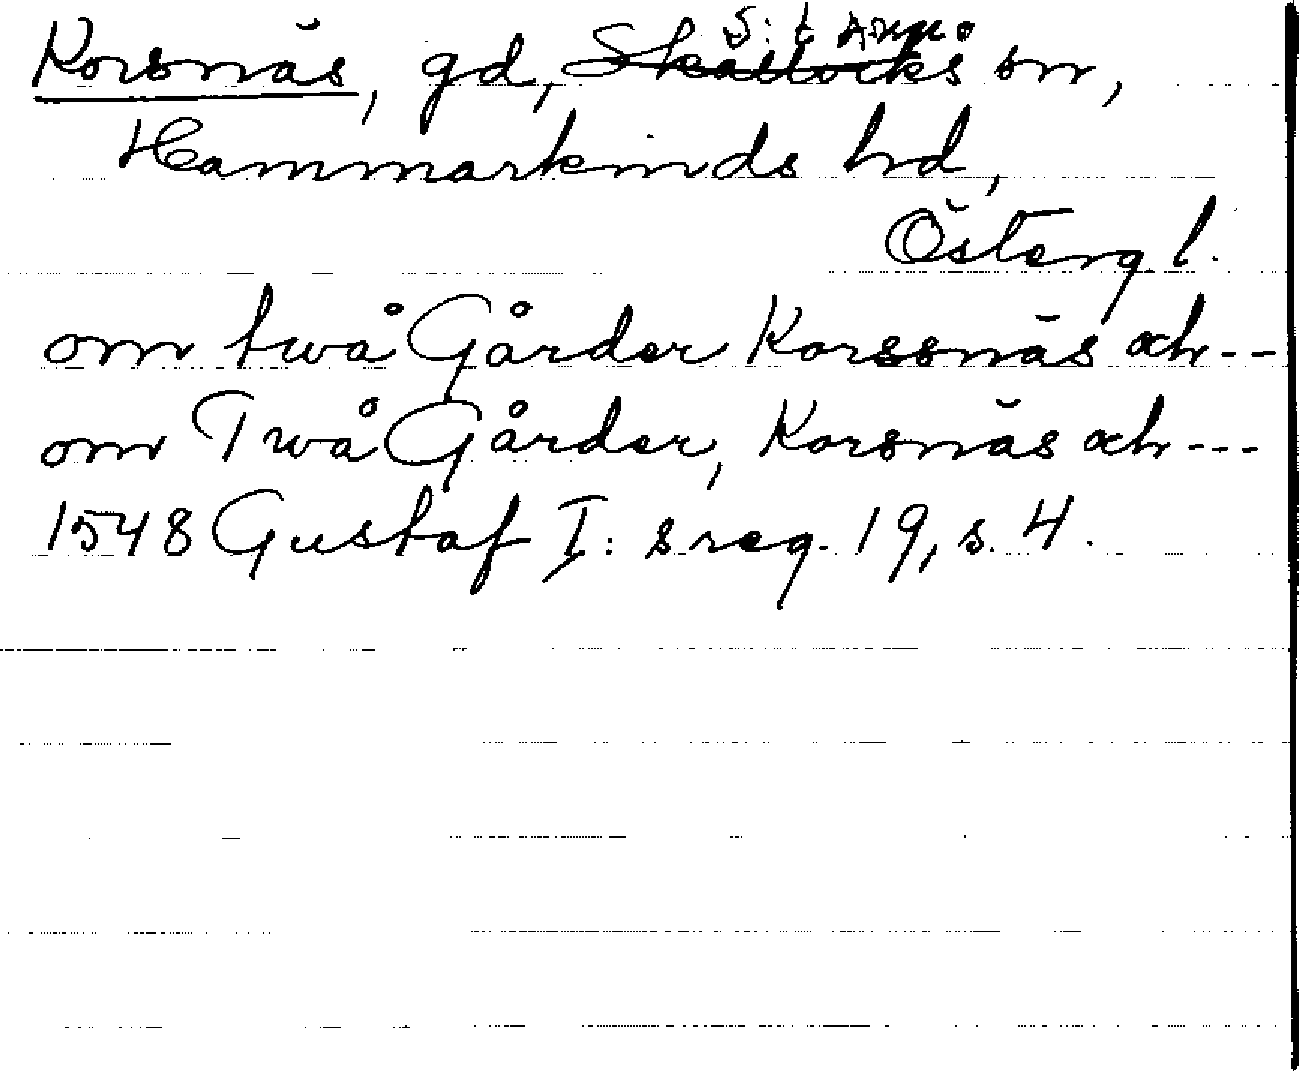 S:t Anna
Korsnäs, gd, Skällviks sn,
Hammarkinds hd,
Österg l.
om twå Gårder Korssnäs och --
om Twå Gårder, Korsnäs och ---
1548 Gustaf I: s reg. 19, s. 4.